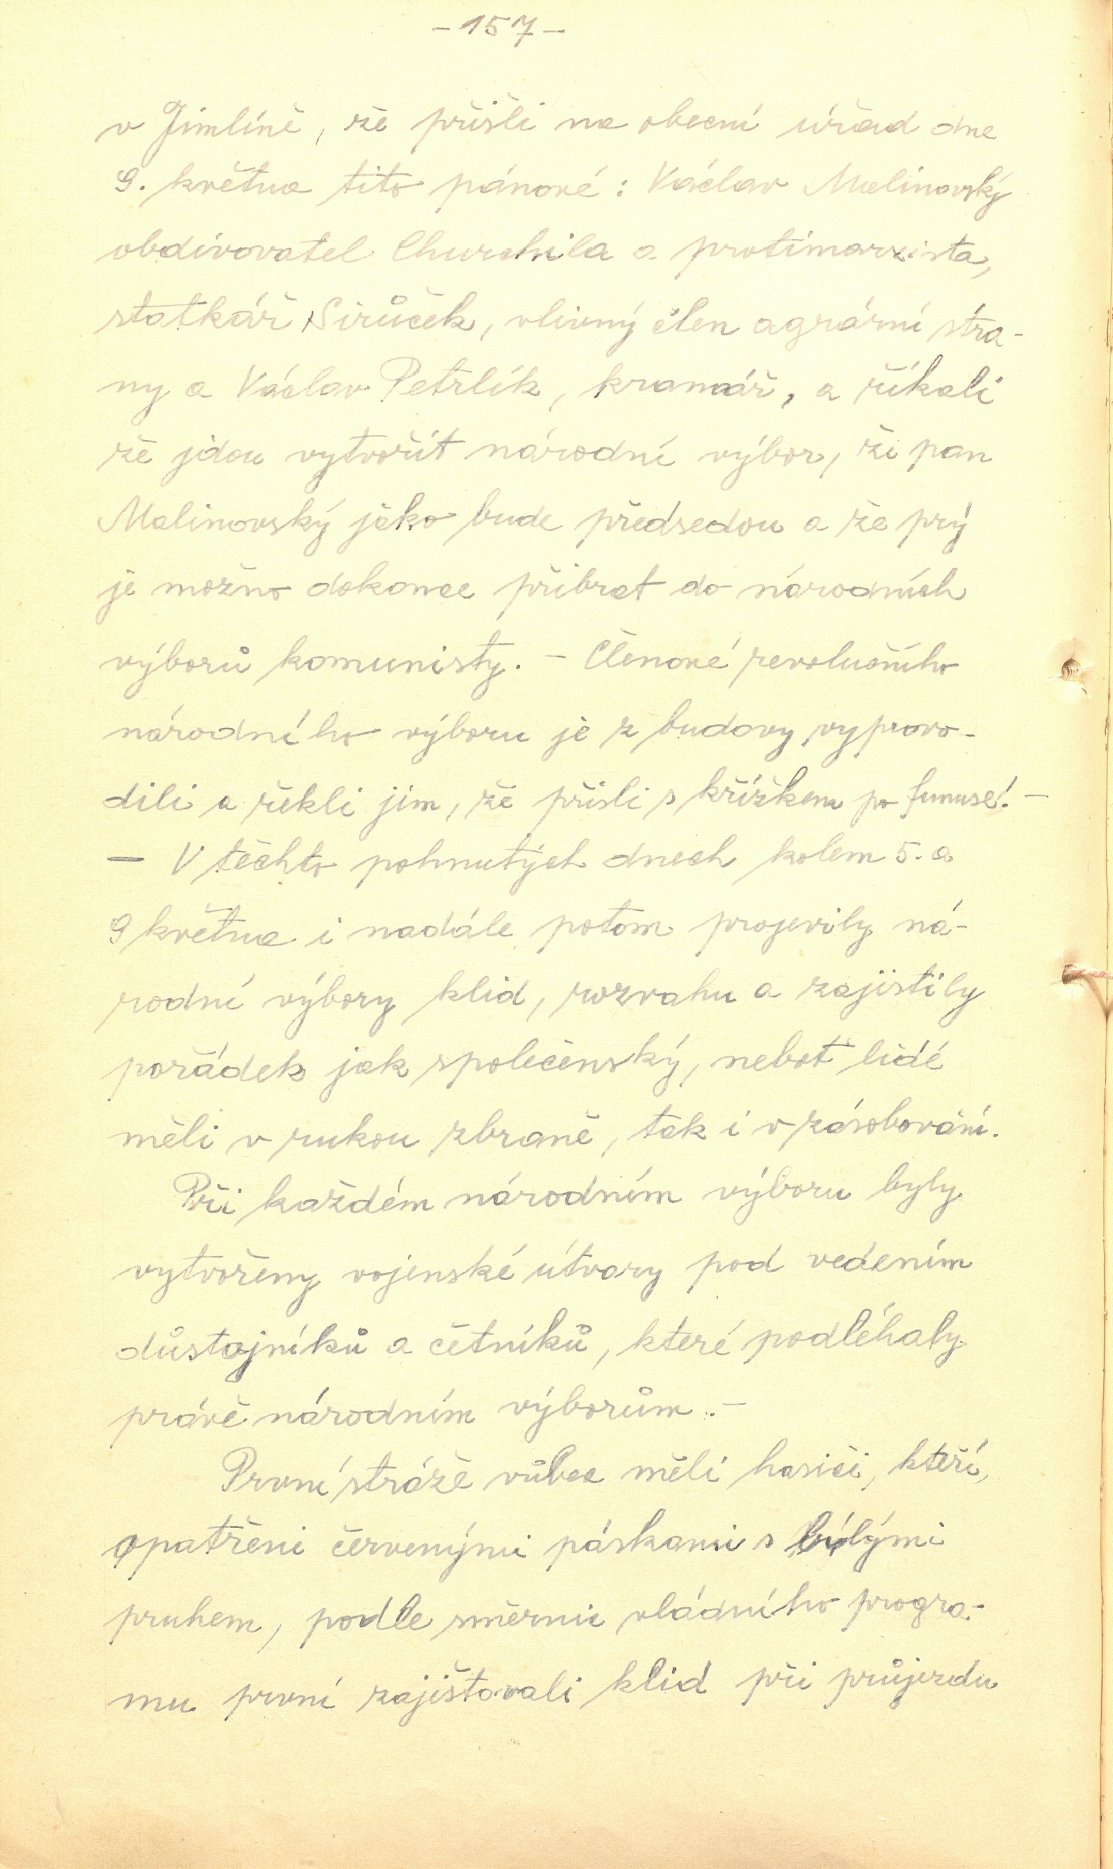 - 157 -
v Jimlíně, že přišli na obecní úřad dne
9. května tito pánové: Václav Malinovský
obdivovatel Churchila a protimarxista,
statkář Sirůček, vlivný člen agrární stra-
ny a Václav Petrlík, kramář, a říkali
že jdou vytvořit národní výbor, že pan
Malinovský jako bude předsedou a že prý
je možno dokonce přibrat do národních
výborů komunisty. - Členové revolučního
národního výboru je z budovy vyprovo-
dili a řekli jim, že přišli s křížkem po funuse!. -
- V těchto pohnutých dnech kolem 5. a
9 května i nadále potom projevily ná-
rodní výbory klid, rozvahu a zajistily
pořádek jak společenský, neboť lidé
měli v rukou zbraně, tak i v zásobování.
Při každém národním výboru byly
vytvořeny vojenské útvary pod vedením
důstojníků a četníků, které podléhaly
právě národním výborům. -
První stráže vůbec měli hasiči, kteří,
opatřeni červenými páskami s bílými
pruhem, podle směrnic vládního progra-
mu první zajišťovali klid při průjezdu